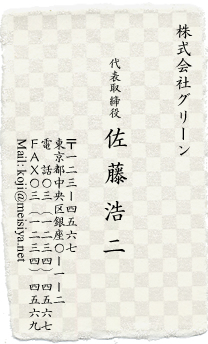 株式会社グリーン
代表取締役 佐藤浩二
〒一二三ー四五六七
東京都中央区銀座〇ー一ー二
電話〇三(一二三四)四五六七
ＦＡＸ〇三(一二三四)四五六九
Mail: koji@meisiya.net